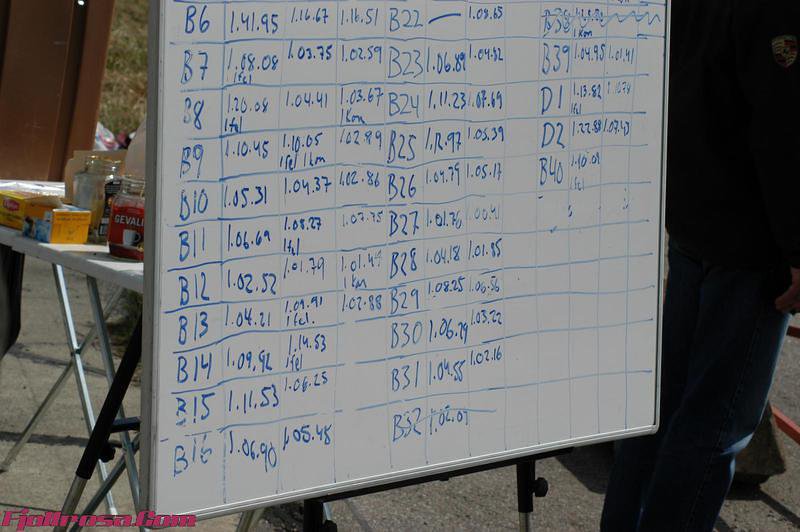 B6 1.41.95 1.16.67 1.16.51 B22 — 1.08.65
1 Kon
B7 1.08.08 1.03.75 1.02.59 B23 1.06.89 1.04.82 B39 1.04.95 1.01.41
1 fel
B8 1.20.08 1.04.41 1.03.67 B24 1.11.23 1.07.69 D1 1.13.82
1 fel 1 Kon 1 fel
B9 1.10.45 1.10.05 1.02.89 B25 1.12.97 1.05.39 D2 1.22.88 1.07.43
1 fel 1 kon
B10 1.05.31 1.04.37 1.02.86 B26 1.04.79 1.05.17 B40
1 fel
B11 1.06.69 1.08.27 1.07.75 B27 1.01.76
1 fel
B12 1.02.52 1.01.79 1.01.49 B28 1.04.18 1.01.85
1 Kon
B13 1.04.21 1.09.91 1.02.88 B29 1.08.25 1.06.56
1 fel.
B14 1.09.92 1.14.53 B30 1.06.79 1.03.22
1 fel
B15 1.11.53 1.06.25 B31 1.04.55 1.02.16
B16 1.06.90 1.05.48 B32 1.06.07
GEVALI
Fjollrosa.Com